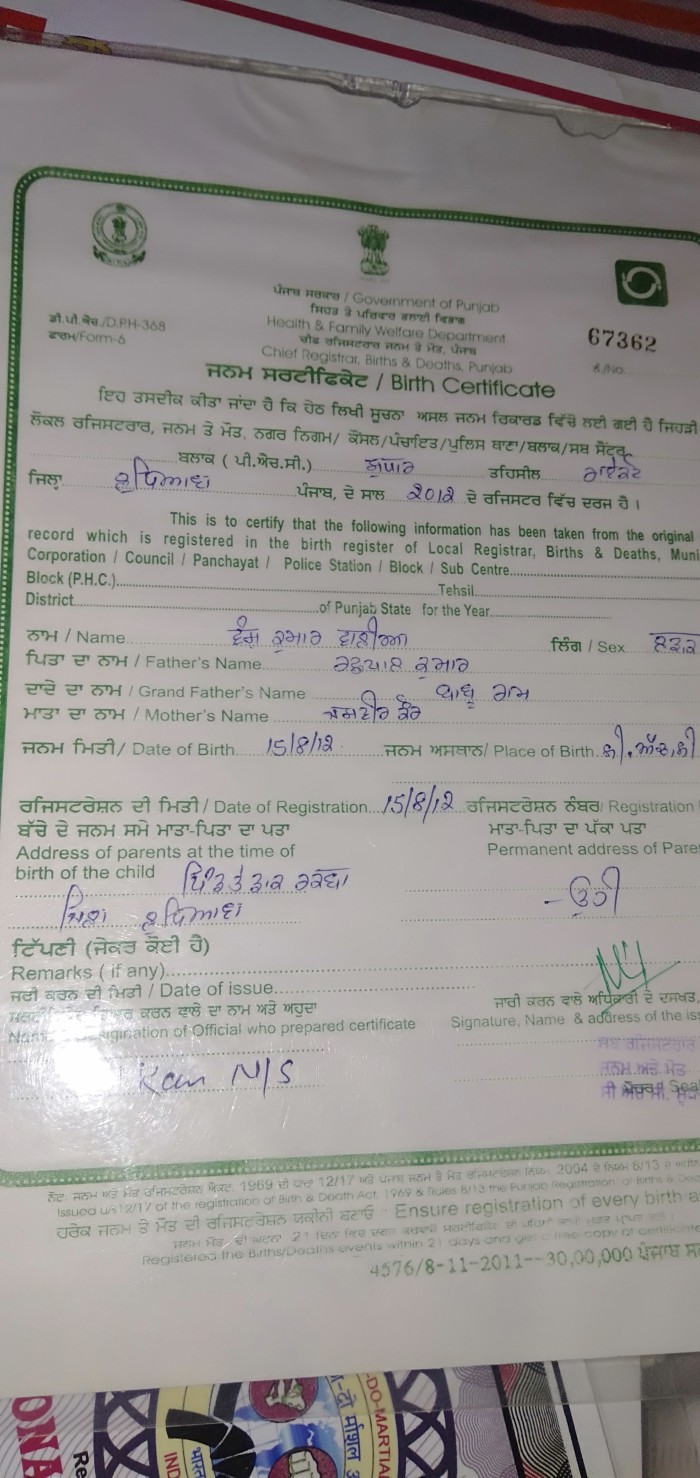 ਪੰਜਾਬ ਸਰਕਾਰ / Government of Punjab
ਸਿਹਤ ਤੇ ਪਰਿਵਾਰ ਭਲਾਈ ਵਿਭਾਗ
ਡੀ.ਪੀ.ਐਚ./D.P.H-368
Health & Family Welfare Department
67362
ਫਾਰਮ/Form-6
ਚੀਫ ਰਜਿਸਟਰਾਰ ਜਨਮ ਤੇ ਮੌਤ, ਪੰਜਾਬ
Chief Registrar, Births & Deaths, Punjab
ਲ./No.
ਜਨਮ ਸਰਟੀਫਿਕੇਟ / Birth Certificate
ਇਹ ਤਸਦੀਕ ਕੀਤਾ ਜਾਂਦਾ ਹੈ ਕਿ ਹੇਠ ਲਿਖੀ ਸੂਚਨਾ ਅਸਲ ਜਨਮ ਰਿਕਾਰਡ ਵਿੱਚੋਂ ਲਈ ਗਈ ਹੈ ਜਿਹੜੀ
ਲੋਕਲ ਰਜਿਸਟਰਾਰ, ਜਨਮ ਤੇ ਮੌਤ, ਨਗਰ ਨਿਗਮ/ ਕੌਂਸਲ/ਪੰਚਾਇਤ/ਪੁਲਿਸ ਥਾਣਾ/ਬਲਾਕ/ਸਬ ਸੈਂਟਰ
ਬਲਾਕ ( ਪੀ.ਐਚ.ਸੀ.) ਸੁਧਾਰ ਤਹਿਸੀਲ ਰਾਏਕੋਟ
ਜਿਲ੍ਹਾ ਲੁਧਿਆਣਾ ਪੰਜਾਬ, ਦੇ ਸਾਲ 2012 ਦੇ ਰਜਿਸਟਰ ਵਿੱਚ ਦਰਜ ਹੈ ।
This is to certify that the following information has been taken from the original
record which is registered in the birth register of Local Registrar, Births & Deaths, Muni
Corporation / Council / Panchayat / Police Station / Block / Sub Centre
Block (P.H.C.) Tehsil
District of Punjab State for the Year
ਨਾਮ / Name ਕੁਮਾਰ ਲਿੰਗ / Sex ਲੜਕਾ
ਪਿਤਾ ਦਾ ਨਾਮ / Father's Name ਕੁਮਾਰ
ਦਾਦੇ ਦਾ ਨਾਮ / Grand Father's Name ਰਾਮ
ਮਾਤਾ ਦਾ ਨਾਮ / Mother's Name ਜਸਵੀਰ ਕੌਰ
ਜਨਮ ਮਿਤੀ/ Date of Birth 15/8/12 ਜਨਮ ਅਸਥਾਨ/ Place of Birth
ਰਜਿਸਟਰੇਸ਼ਨ ਦੀ ਮਿਤੀ / Date of Registration 15/8/12 ਰਜਿਸਟਰੇਸ਼ਨ ਨੰਬਰ/ Registration
ਬੱਚੇ ਦੇ ਜਨਮ ਸਮੇਂ ਮਾਤਾ-ਪਿਤਾ ਦਾ ਪਤਾ ਮਾਤਾ-ਪਿਤਾ ਦਾ ਪੱਕਾ ਪਤਾ
Address of parents at the time of Permanent address of Pare
birth of the child ਪਿੰਡ ਤੇ ਡਾਕ
ਜਿਲਾ ਲੁਧਿਆਣਾ - ਉਹੀ
ਟਿੱਪਣੀ (ਜੇਕਰ ਕੋਈ ਹੈ)
Remarks ( if any)
ਜਾਰੀ ਕਰਨ ਦੀ ਮਿਤੀ / Date of issue
ਕਰਨ ਵਾਲੇ ਦਾ ਨਾਮ ਅਤੇ ਅਹੁਦਾ ਜਾਰੀ ਕਰਨ ਵਾਲੇ ਅਧਿਕਾਰੀ ਦੇ ਦਸਤਖਤ,
of Official who prepared certificate Signature, Name & address of the iss
N/S
ਸਬ ਰਜਿਸਟਰਾਰ
ਜਨਮ ਅਤੇ ਮੌਤ
Seal
1969 12/17 2004
Issued u/s12/17 of the registration of Birth & Death Act, 1969 & Rules 8/13 the Punjab Registration of Births &
ਹਰੇਕ ਜਨਮ ਤੇ ਮੌਤ ਦੀ ਰਜਿਸਟਰੇਸ਼ਨ ਯਕੀਨੀ ਬਣਾਓ Ensure registration of every birth a
Registered the Births/Deaths events within 21 days and get free copy of certificate
4576/8-11-2011--30,00,000 ਪੰਜਾਬ
ONA
Re
IND
भारत
DO-MARTIAL